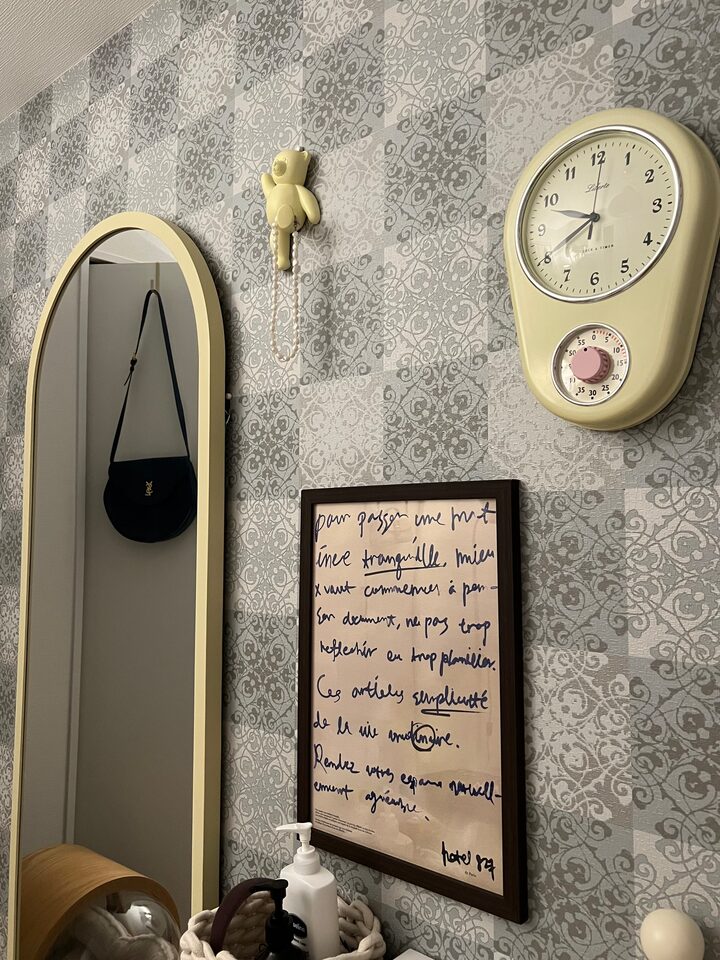 12
1
2
3
4
5
6
7
8
9
10
CLOCK & TIMER
0
5
10
15
20
25
30
35
50
55
YSL
pour passer une mat
inée tranquille, mieu
x vaut commencer à pen-
ser doucement, ne pas trop
reflechir ou trop planifier.
Ces articles simplicité
de la vie
Rendez votre espace naturell-
ement agréable.
hotel 827